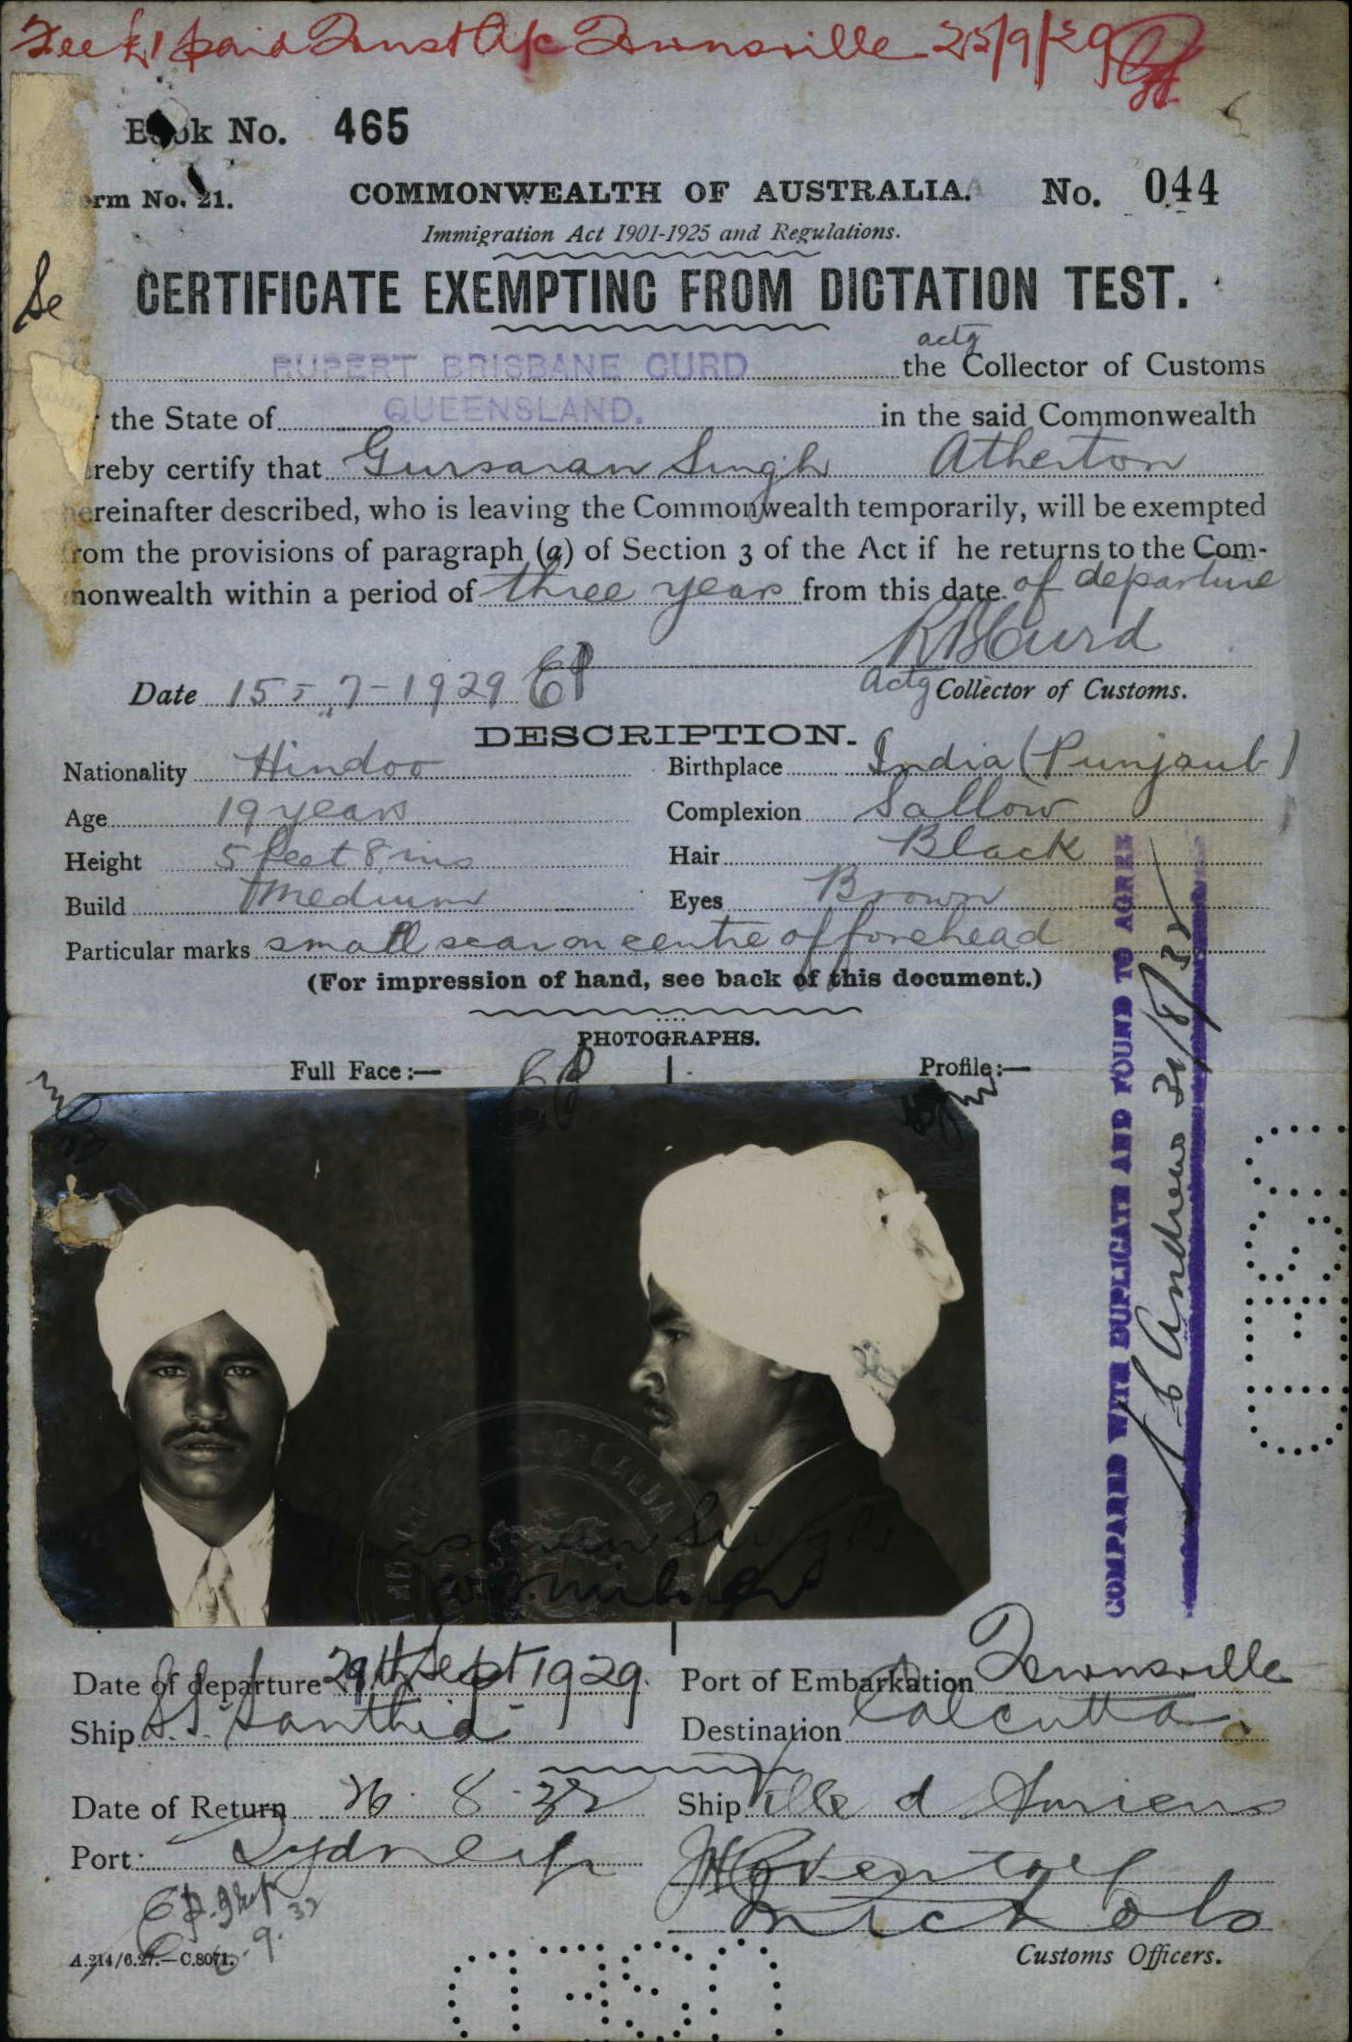 Fee £1 paid Trust A/c Townsville 25/9/29
Book No. 465
Form No. 21. COMMONWEALTH OF AUSTRALIA. No. 044
Immigration Act 1901-1925 and Regulations.
Se
CERTIFICATE EXEMPTING FROM DICTATION TEST.
actg
RUPERT BRISBANE CURD the Collector of Customs
the State of QUEENSLAND. in the said Commonwealth
hereby certify that Gursaran Singh Atherton
hereinafter described, who is leaving the Commonwealth temporarily, will be exempted
from the provisions of paragraph (a) of Section 3 of the Act if he returns to the Com-
monwealth within a period of three years from this date of departure
R B Curd
Date 15-7-1929 actg Collector of Customs.
DESCRIPTION.
Nationality Hindoo Birthplace India (Punjaub)
Age 19 years Complexion Sallow
Height 5 feet 8 ins Hair Black
Build Medium Eyes Brown
Particular marks small scar on centre of forehead
(For impression of hand, see back of this document.)
PHOTOGRAPHS.
Full Face:— Profile:—
COMPARED WITH DUPLICATE AND FOUND TO AGREE
Andrews 31/8/32
Date of departure 29th Sept 1929. Port of Embarkation Townsville
Ship S.S. Santhia Destination Calcutta
Date of Return 26.8.32 Ship Ville d Amiens
Port: Sydney
Nichols
A.214/6.27.—C.8071. Customs Officers.